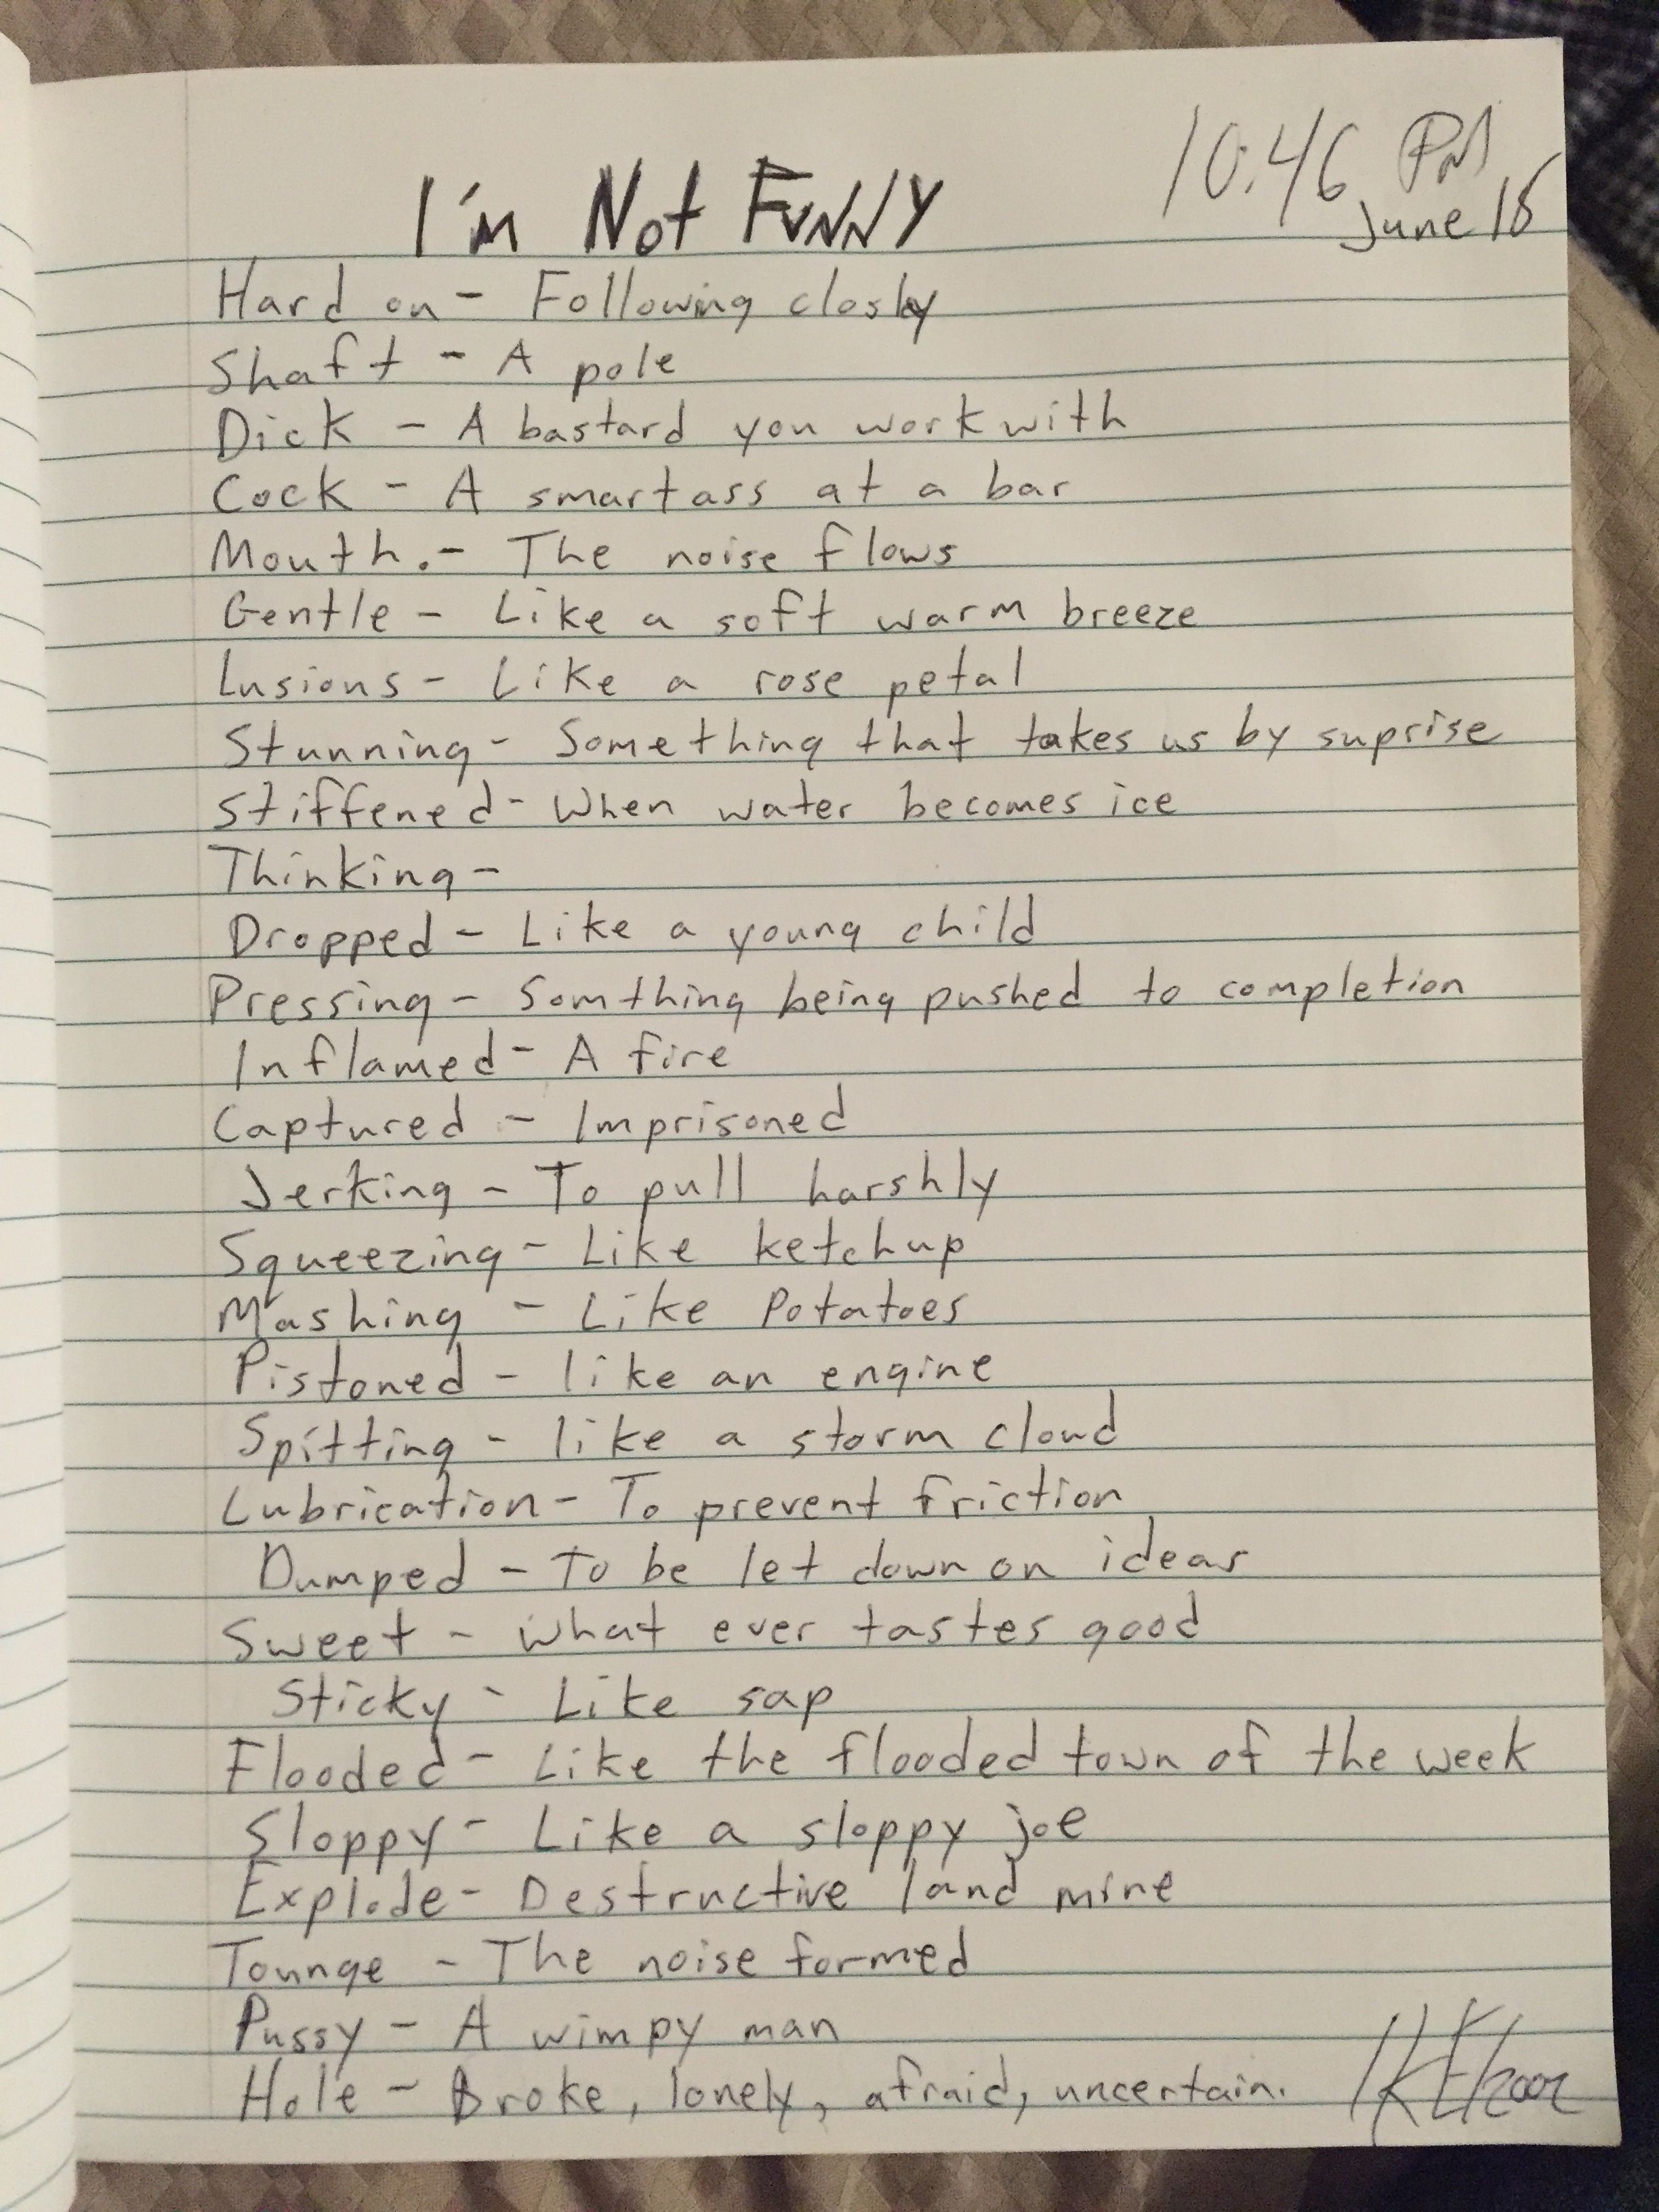 10:46 PM
June 15
I'm Not FUNNY
Hard on - Following closly
Shaft - A pole
Dick - A bastard you work with
Cock - A smartass at a bar
Mouth. - The noise flows
Gentle - Like a soft warm breeze
Lusions - Like a rose petal
Stunning - Something that takes us by suprise
Stiffened - When water becomes ice
Thinking -
Dropped - Like a young child
Pressing - Somthing being pushed to completion
Inflamed - A fire
Captured - Imprisoned
Jerking - To pull harshly
Squeezing - Like ketchup
Mashing - Like Potatoes
Pistoned - like an engine
Spitting - like a storm cloud
Lubrication - To prevent friction
Dumped - To be let down on ideas
Sweet - what ever tastes good
Sticky - Like sap
Flooded - Like the flooded town of the week
Sloppy - Like a sloppy joe
Explode - Destructive land mine
Tounge - The noise formed
Pussy - A wimpy man
Hole - Broke, lonely, afraid, uncertain.